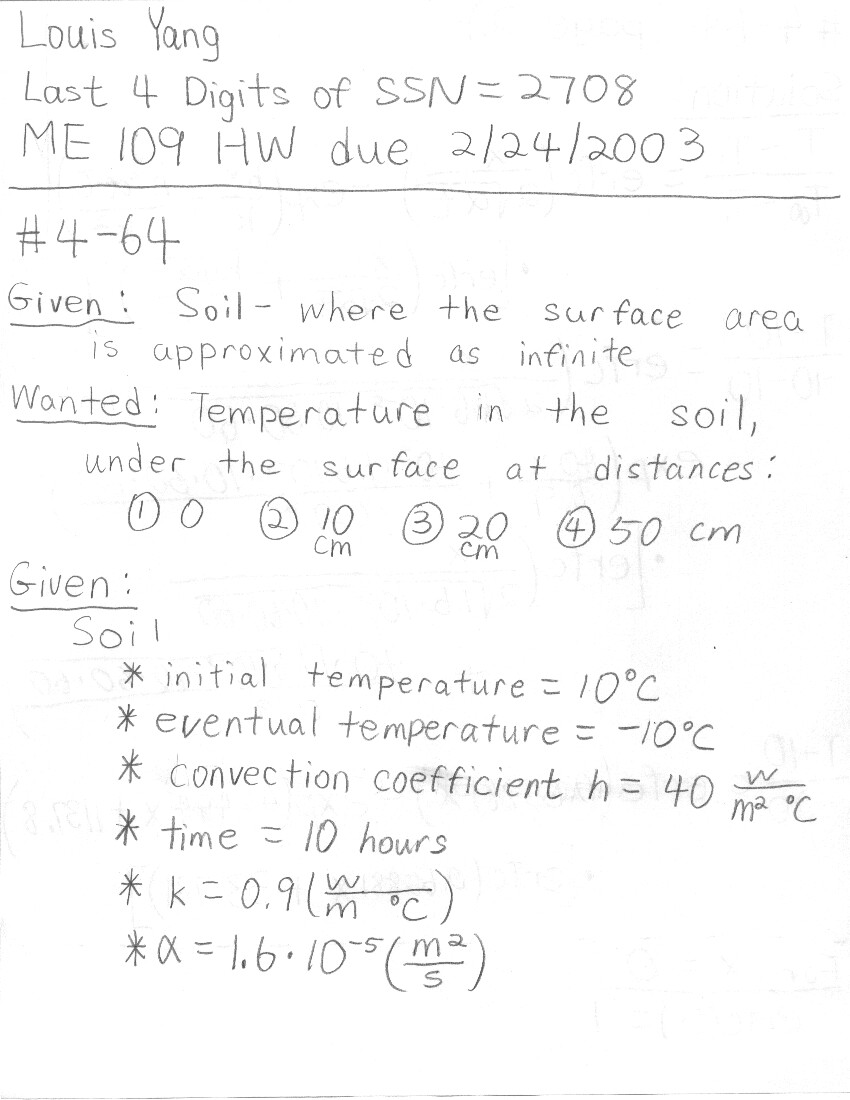 Louis Yang
Last 4 Digits of SSN = 2708
ME 109 HW due 2/24/2003
#4-64
Given: Soil - where the surface area
is approximated as infinite
Wanted: Temperature in the soil,
under the surface at distances:
① 0 ② 10 cm ③ 20 cm ④ 50 cm
Given:
Soil
* initial temperature = 10°C
* eventual temperature = -10°C
* convection coefficient h = 40 W/m² °C
* time = 10 hours
* k = 0.9 (W/m °C)
* α = 1.6 · 10⁻⁵ (m²/s)